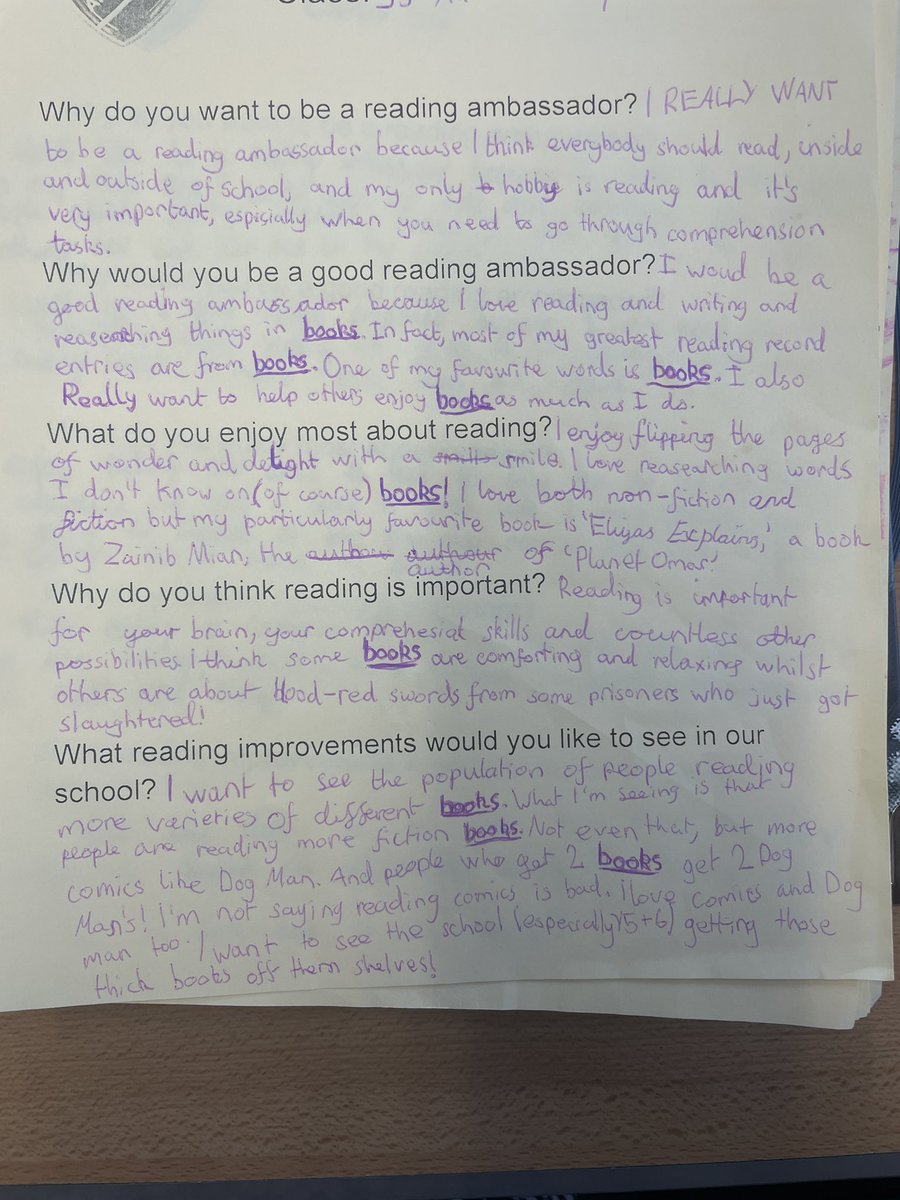 Why do you want to be a reading ambassador? I REALLY WANT
to be a reading ambassador because I think everybody should read, inside
and outside of school, and my only hobby is reading and it's
very important, espicially when you need to go through comprehension
tasks.
Why would you be a good reading ambassador? I woud be a
good reading ambassador because I love reading and writing and
reasearching things in books. In fact, most of my greatest reading record
entries are from books. One of my favourite words is books. I also
Really want to help others enjoy books as much as I do.
What do you enjoy most about reading? I enjoy flipping the pages
of wonder and delight with a smile. I love reasearching words
I don't know on (of course) books! I love both non-fiction and
fiction but my particularly favourite book is 'Eliyas Explains,' a book
by Zainib Mian, the author of 'Planet Omar.'
Why do you think reading is important? Reading is important
for your brain, your comprehesiat skills and countless other
possibilities. I think some books are comforting and relaxing whilst
others are about blood-red swords from some prisoners who just got
slaughtered!
What reading improvements would you like to see in our
school? I want to see the population of people reading
more varieties of different books. What I'm seeing is that
people are reading more fiction books. Not even that, but more
comics like Dog Man. And people who get 2 books get 2 Dog
Man's! I'm not saying reading comics is bad. i love comics and Dog
man too. I want to see the school (especially Y5+6) getting those
thick books off them shelves!